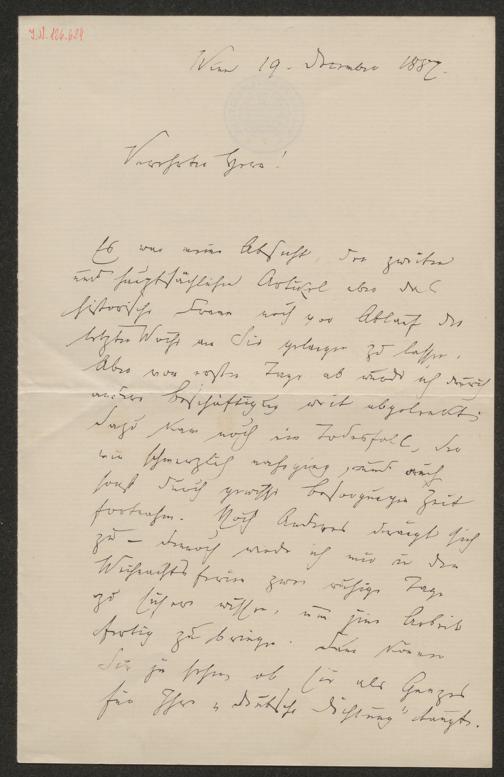 J.N. 126.624
Wien 19. December 1887.
Verehrter Herr!
Es war meine Absicht, den zweiten
und hauptsächlichen Artikel über das
historische Drama noch vor Ablauf der
letzten Woche an Sie gelangen zu lassen.
Aber vom ersten Tage ab wurde ich durch
andere Beschäftigung weit abgelenkt;
dazu kam noch ein Todesfall, der
mir schmerzlich nahe ging, und auch
sonst durch gewisse Besorgungen Zeit
fortnahm. Noch Anderes drängt sich
zu – dennoch werde ich mir in den
Weihnachtsferien zwei ruhige Tage
zu sichern wissen, um jene Arbeit
fertig zu bringen. Dann können
Sie ja sehen ob sie als Ganzes
für Ihre "Deutsche Dichtung" taugt.